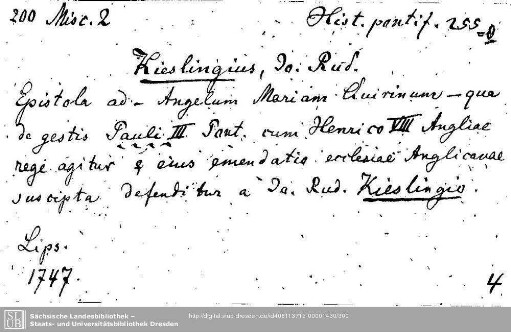 200 Misc. 2
Hist. pontif. 255
Kieslingius, Jo. Rud.
Epistola ad - Angelum Mariam Quirinum - qua
de gestis Pauli III Pont. cum Henrico VIII Angliae
rege agitur & eius emendatio ecclesiae Anglicanae
suscipta defenditur a Jo. Rud. Kieslingio.
Lips.
1747.
4
Sächsische Landesbibliothek –
Staats- und Universitätsbibliothek Dresden